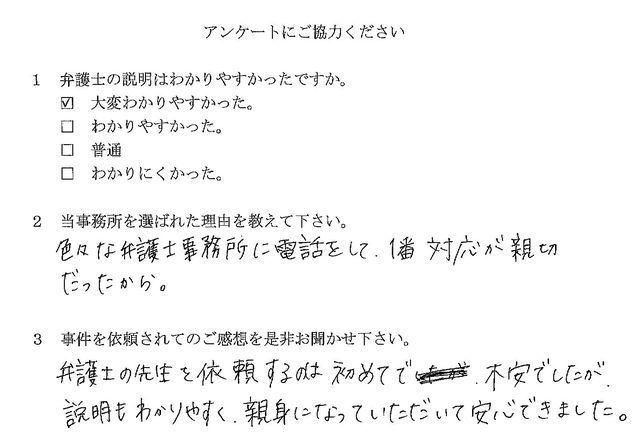 アンケートにご協力ください
1 弁護士の説明はわかりやすかったですか。
☑ 大変わかりやすかった。
☐ わかりやすかった。
☐ 普通
☐ わかりにくかった。
2 当事務所を選ばれた理由を教えて下さい。
色々な弁護士事務所に電話をして、1番 対応が親切
だったから。
3 事件を依頼されてのご感想を是非お聞かせ下さい。
弁護士の先生を依頼するのは初めてで、不安でしたが、
説明もわかりやすく、親身になっていただいて安心できました。